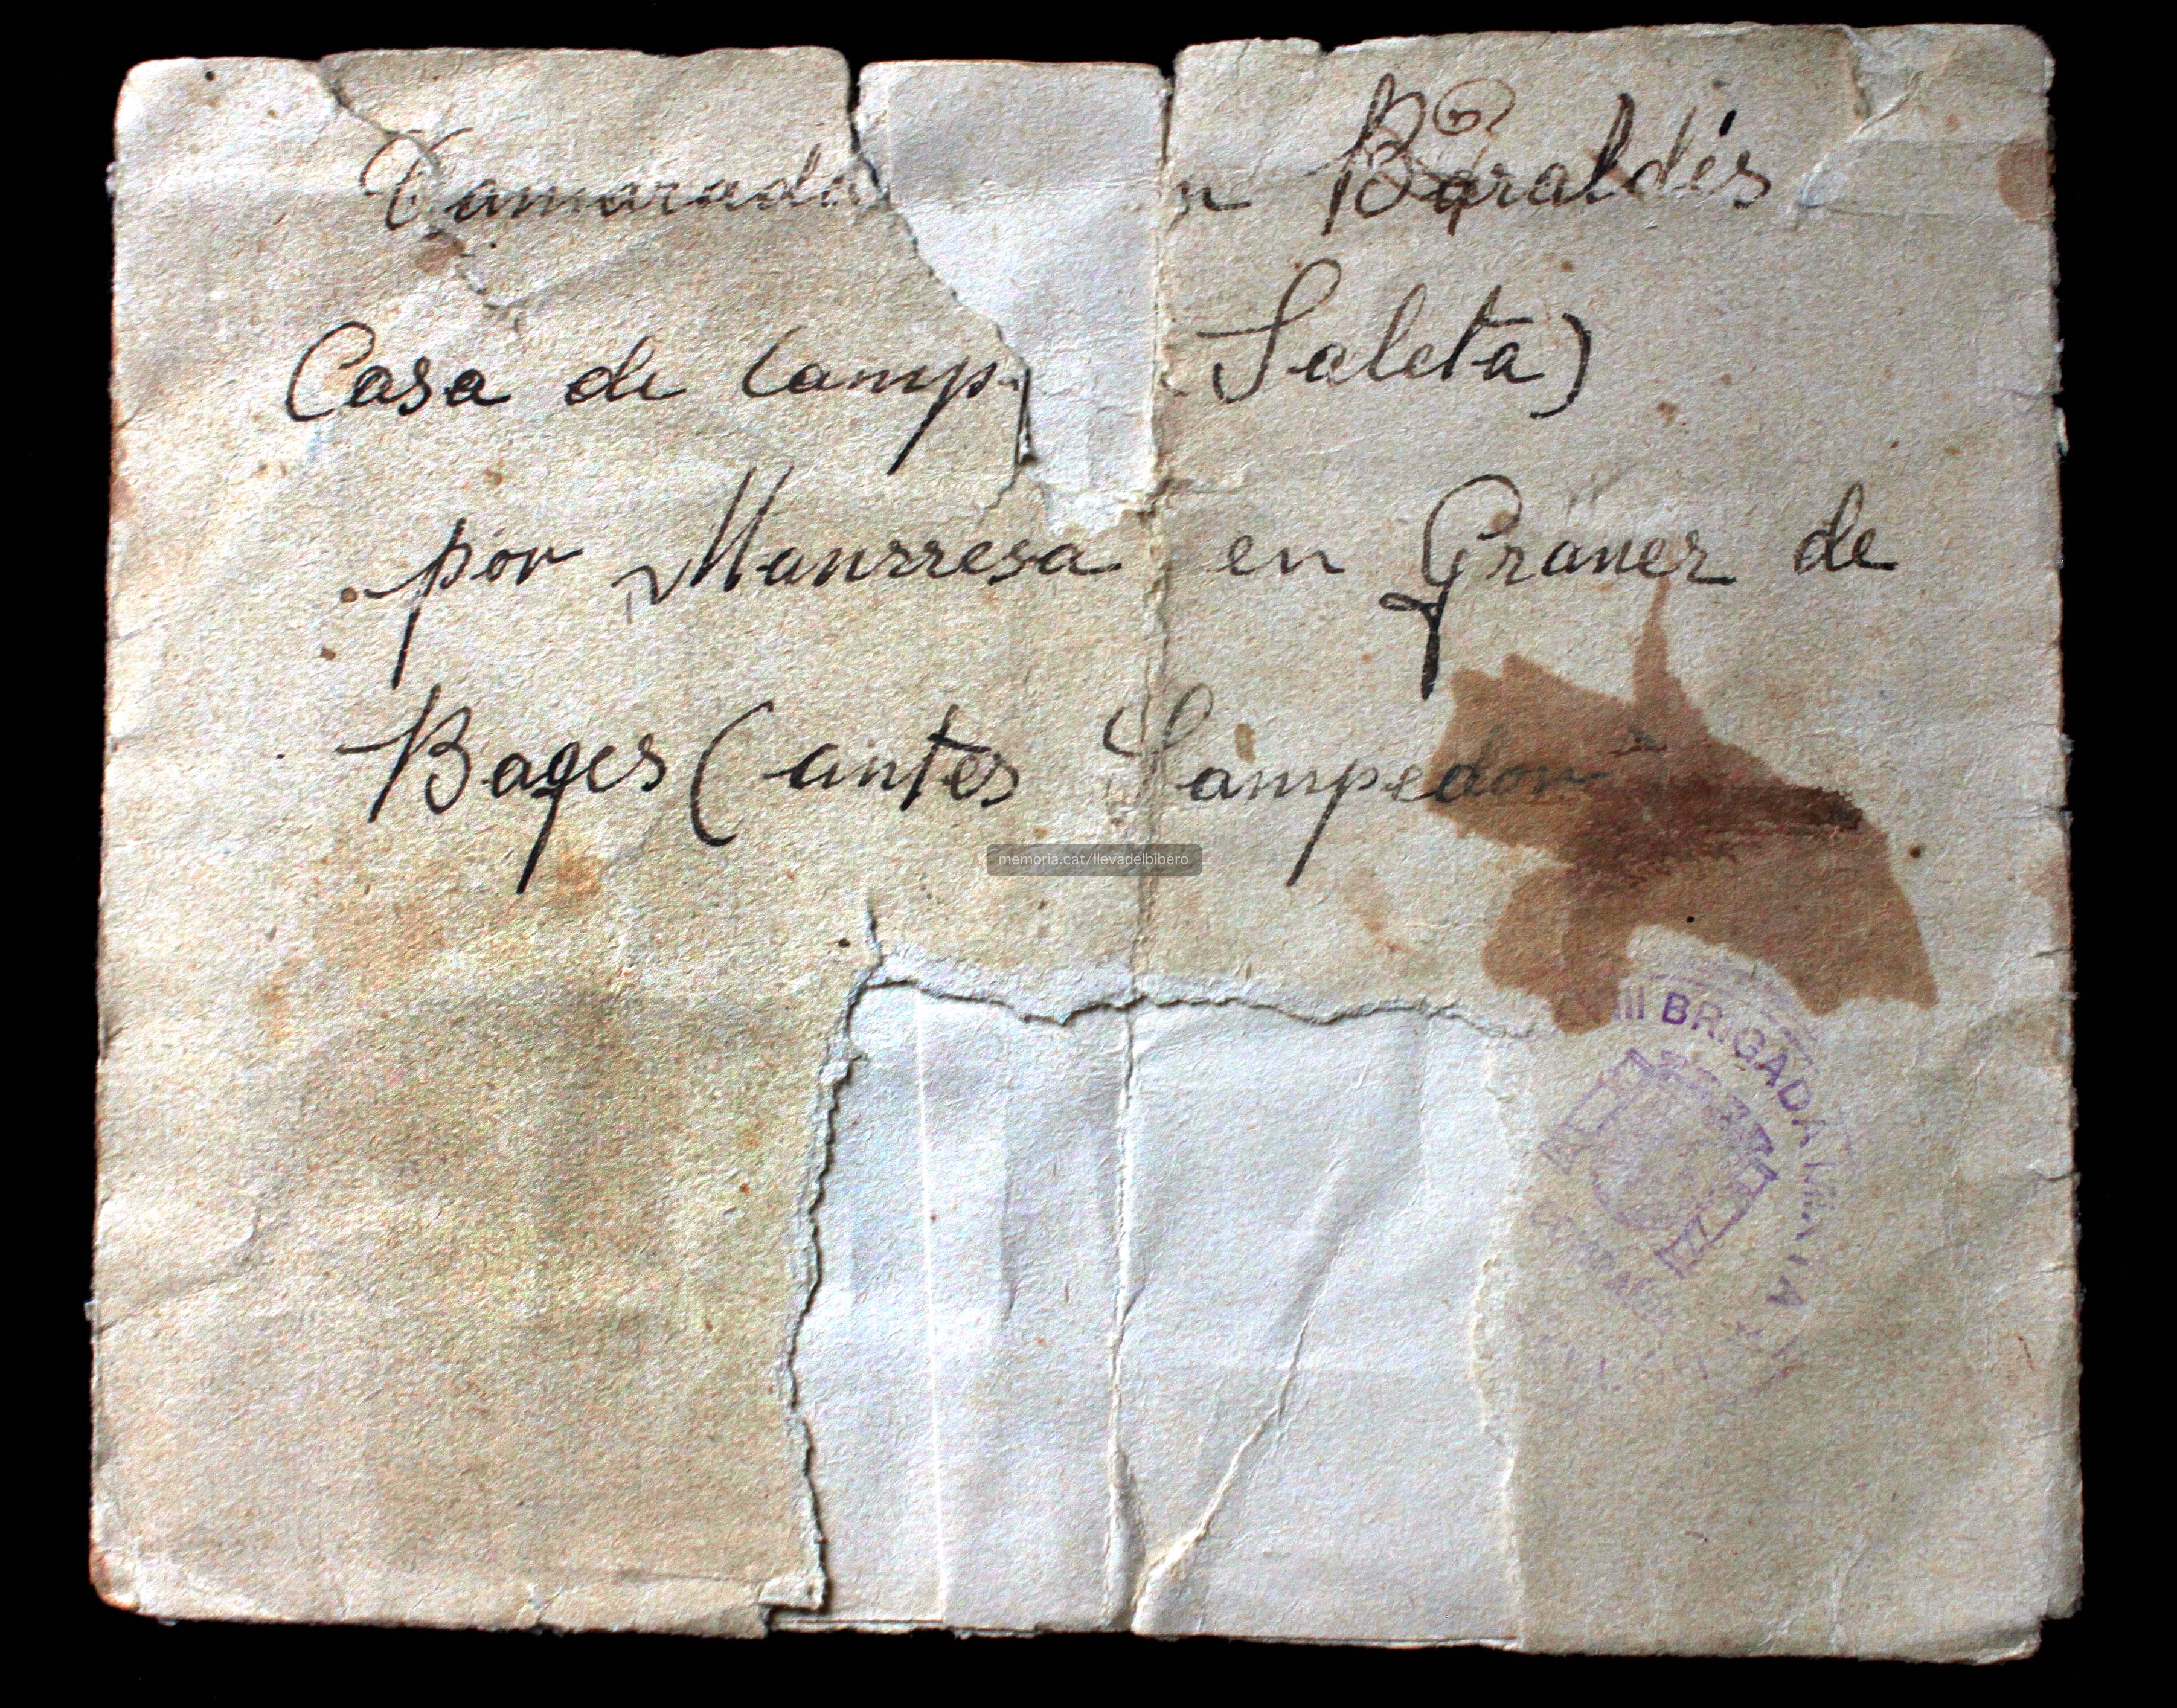 Camarada Baraldés
Casa de Camp Saleta)
por Manrresa en Graner de
Bages (antes Sampedor
memoria.cat/llevadelbibero
III BRIGADA MIXTA